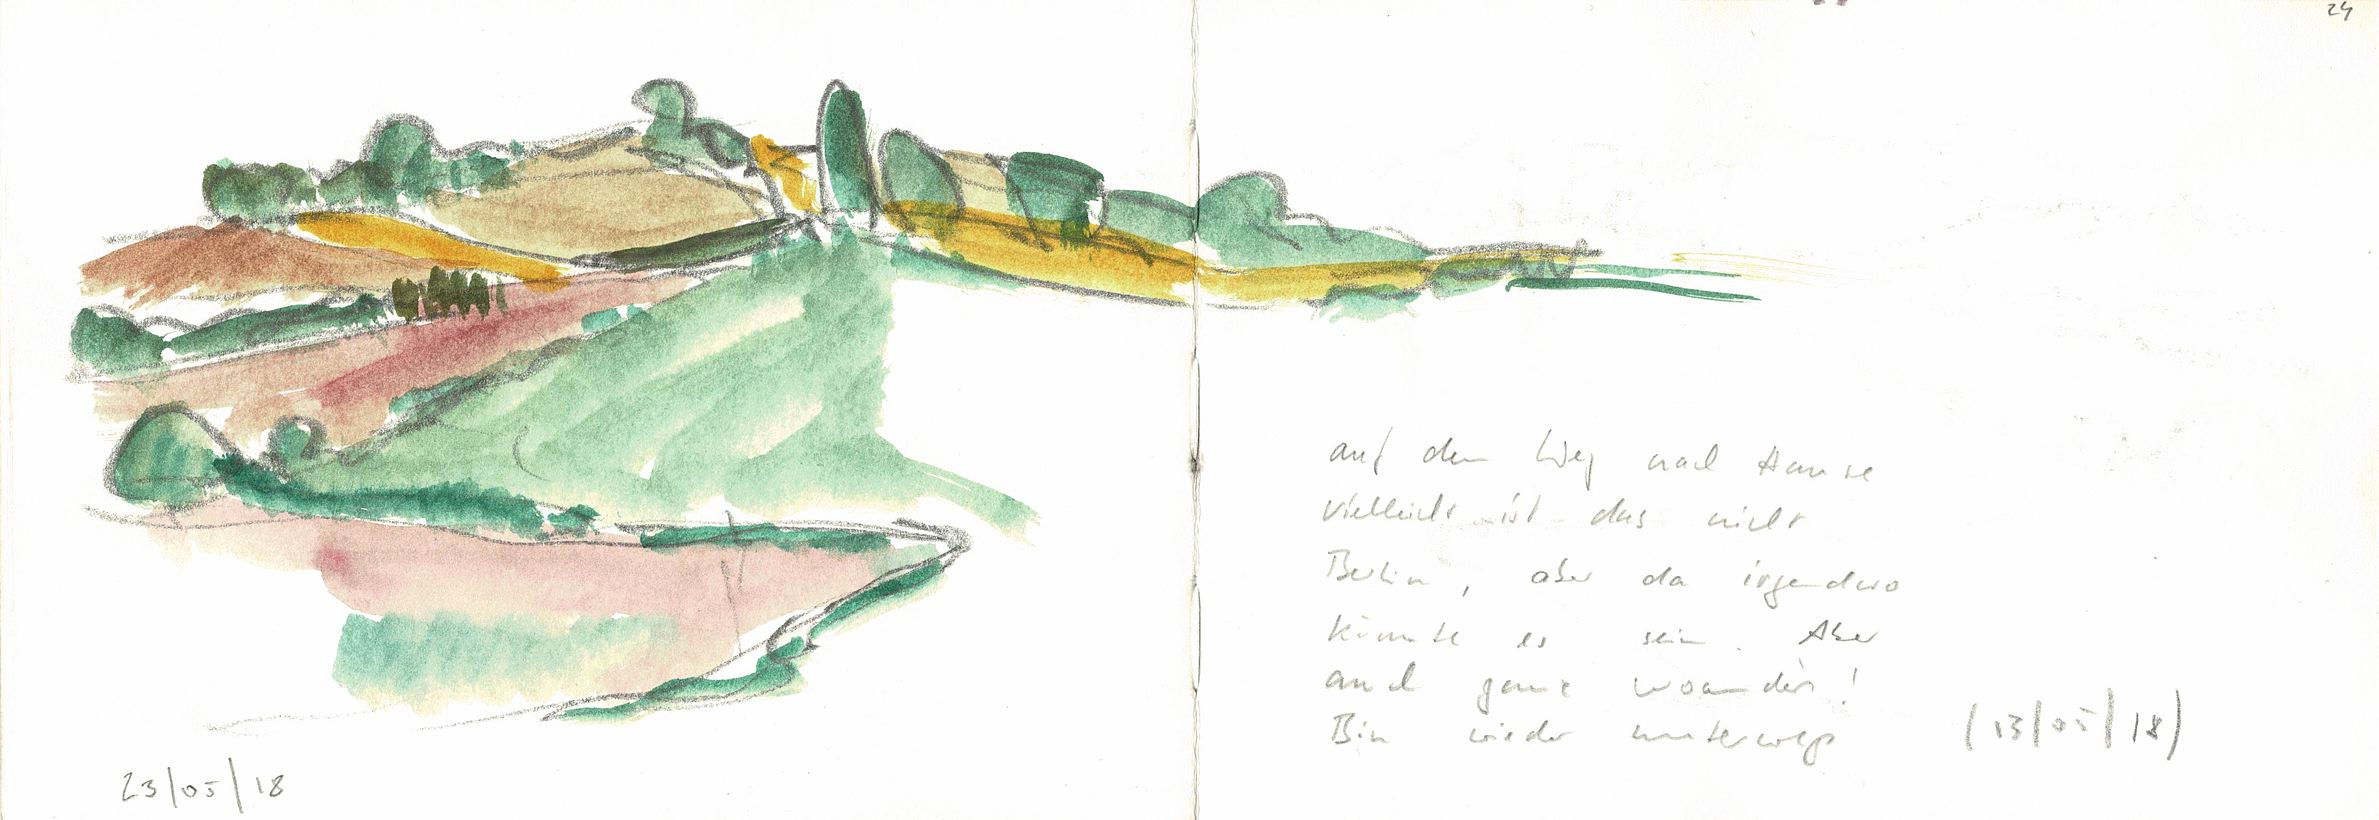 24
auf dem Weg nach Hause
vielleicht ist das nicht
Berlin, aber da irgendwo
könnte es sein. Aber
auch ganz woanders!
Bin wieder unterwegs
(13/05/18)
23/05/18